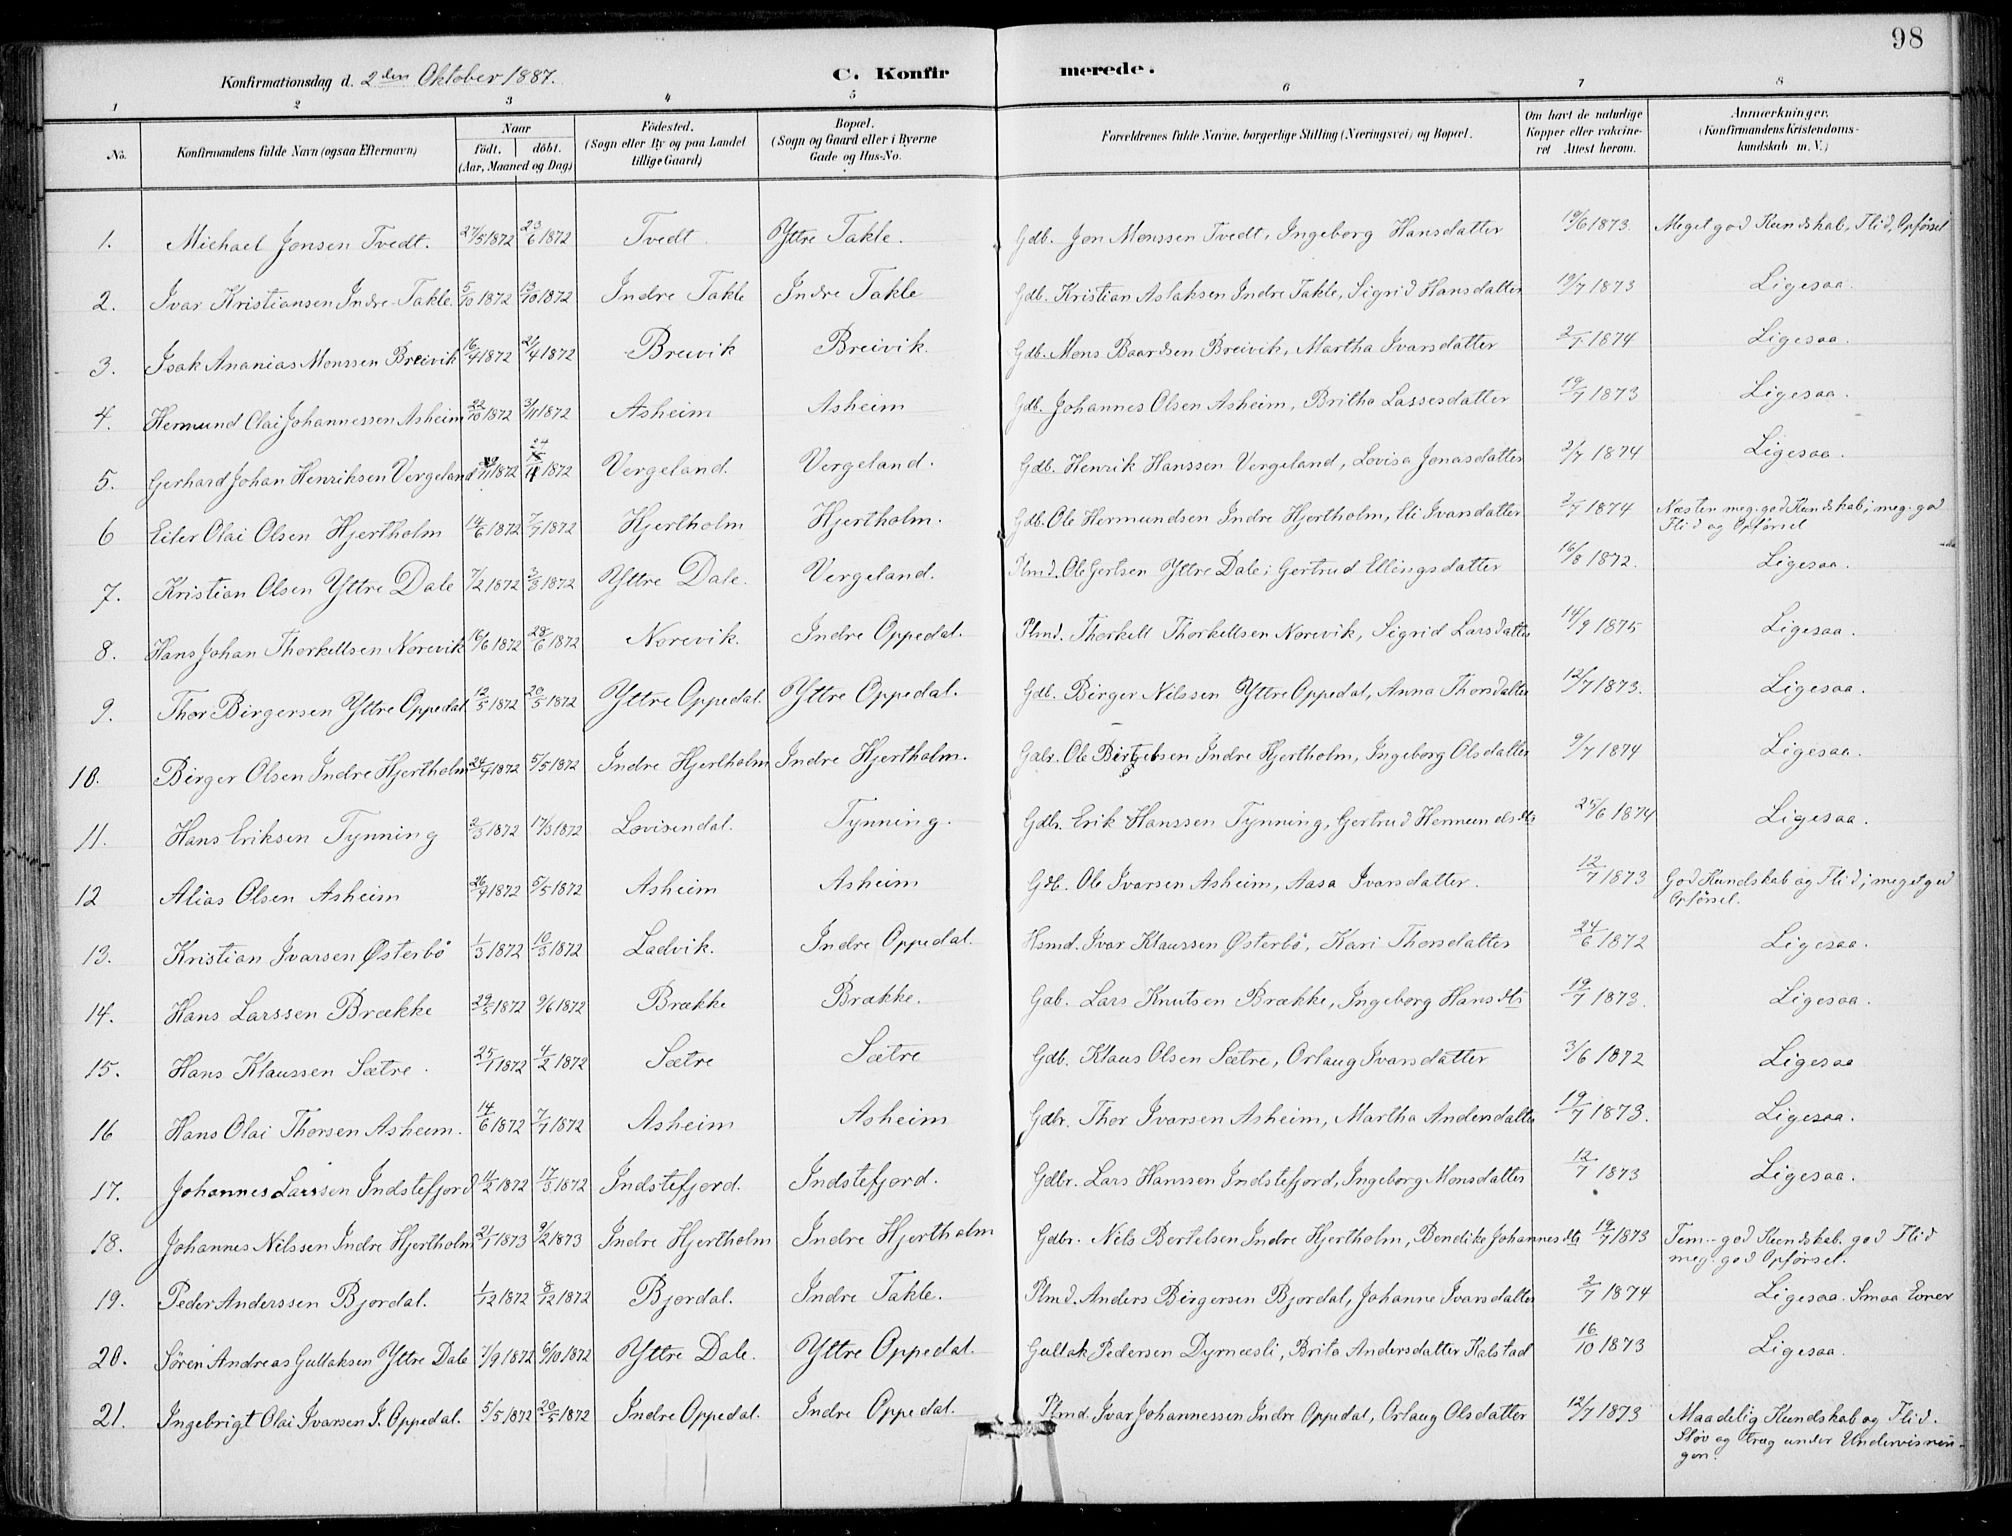 98
Konfirmationsdag d. 2den Oktober 1887.
C. Konfirmerede.
1 2 3 4 5 6 7 8
No.
Konfirmandens fulde Navn (ogsaa Efternavn)
Naar
födt. döbt.
(Aar, Maaned og Dag)
Födested.
(Sogn eller By og paa Landet
tillige Gaard)
Bopæl.
(Sogn og Gaard eller i Byerne
Gade og Hus-No.
Forældrenes fulde Navne, borgerlige Stilling (Næringsvei) og Bopæl.
Om havt de naturlige
Kopper eller vakcine-
ret Attest herom.
Anmerkninger.
(Konfirmandens Kristendoms-
kundskab m.V.)
1. Michael Jonsen Tvedt. 27/5 1872 23/6 1872 Tvedt. Yttre Takle. Gdb. Jon Monssen Tvedt, Ingeborg Hansdatter 19/6 1873. Meget god Kundskab, Flid, Opførsel
2. Ivar Kristiansen Indre-Takle. 5/10 1872 13/10 1872 Indre Takle Indre Takle Gdb. Kristian Aslaksen Indre Takle, Sigrid Hansdatter 19/7 1873 Ligesaa.
3. Isak Ananias Monssen Breivik 16/4 1872 21/4 1872 Breivik Breivik. Gdb. Mons Baardsen Breivik, Martha Ivarsdatter 2/7 1874 Ligesaa.
4. Hermund Olai Johannessen Asheim 22/10 1872 3/11 1872 Asheim Asheim Gdb. Johannes Olsen Asheim, Britha Lassesdatter 19/7 1873 Ligesaa.
5. Gerhard Johan Henriksen Vergeland 11 1872 24/11 1872 Vergeland. Vergeland. Gdb. Henrik Hanssen Vergeland, Lovisa Jonasdatter 2/7 1874 Ligesaa.
6 Eiler Olai Olsen Hjertholm 14/6 1872 7/7 1872 Hjertholm Hjertholm. Gdb. Ole Hermundsen Indre Hjertholm, Eli Ivarsdatter 2/7 1874 Næsten meg. god Kundskab; meg. god
Flid og Opførsel
7. Kristian Olsen Yttre Dale 7/2 1872 3/3 1872 Yttre Dale. Vergeland. Plmd. Ole Gertsen Yttre Dale; Gertrud Ellingsdatter 16/8 1872. Ligesaa.
8. Hans Johan Thorkellsen Norevik 16/6 1872 28/6 1872 Norevik. Indre Oppedal. Plmd. Thorkell Thorkellsen Norevik, Sigrid Larsdatter 14/9 1875 Ligesaa.
9. Thor Birgersen Yttre Oppedal 12/5 1872 20/5 1872 Yttre Oppedal. Yttre Oppedal. Gdb. Birger Nilssen Yttre Oppedal, Anna Thorsdatter 12/7 1873. Ligesaa.
10. Birger Olsen Indre Hjertholm 24/4 1872 5/5 1872 Indre Hjertholm Indre Hjertholm. Gdbr. Ole Indre Hjertholm, Ingeborg Olsdatter 9/7 1874 Ligesaa.
11. Hans Eriksen Tynning 2/3 1872 17/3 1872 Lovisendal. Tynning. Gdbr. Erik Hanssen Tynning, Gertrud Hermundsdtr 25/6 1874 Ligesaa.
12 Alias Olsen Asheim 26/4 1872 5/5 1872 Asheim Asheim Gdb. Ole Ivarsen Asheim, Aasa Ivarsdatter. 12/7 1873 God Kundskab og Flid; meget god
Opførsel.
13. Kristian Ivarsen Østerbö 1/3 1872 10/3 1872 Ladvik. Indre Oppedal. Hsmd. Ivar Klaussen Østerbö, Kari Thorsdatter 24/6 1872 Ligesaa.
14. Hans Larssen Brække 29/5 1872 9/6 1872 Brække Brække. Gdb. Lars Knutsen Brække, Ingeborg Hansdtr 19/7 1873. Ligesaa.
15. Hans Klaussen Sætre. 25/1 1872 4/2 1872 Sætre Sætre Gdb. Klaus Olsen Sætre, Orlaug Ivarsdatter 3/6 1872 Ligesaa
16 Hans Olai Thorsen Asheim. 14/6 1872 7/7 1872 Asheim Asheim Gdbr. Thor Ivarsen Asheim, Martha Andersdatter 19/7 1873. Ligesaa.
17. Johannes Larssen Indstefjord 4/2 1872 17/3 1872 Indstefjord. Indstefjord. Gdbr. Lars Hanssen Indstefjord, Ingeborg Monsdatter 12/7 1873 Ligesaa.
18. Johannes Nilssen Indre Hjertholm 21/1 1873 9/2 1873 Indre Hjertholm Indre Hjertholm Gdbr. Nils Bertelsen Indre Hjertholm, Bendike Johannesdtr 19/7 1873 Tem. god Kundskab. god Flid
meg. god Opførsel.
19. Peder Anderssen Bjordal. 1/12 1872 8/12 1872 Bjordal. Indre Takle. Plmd. Anders Birgersen Bjordal, Johanne Ivarsdatter 2/7 1874 Ligesaa. Smaa Evner
20. Søren Andreas Gullaksen Yttre Dale 7/9 1872 6/10 1872 Yttre Dale. Yttre Oppedal. Gullak Pedersen Dyrnæsli, Brita Andersdatter Kalstad 16/10 1873 Ligesaa.
21. Ingebrigt Olai Ivarsen I. Oppedal. 5/5 1872 20/5 1872 Indre Oppedal. Indre Oppedal. Plmd. Ivar Johannessen Indre Oppedal, Orlaug Olsdatter 12/7 1873 Maadelig Kundskab og Flid.
Sløv og træg under Undervisnin-
gen.